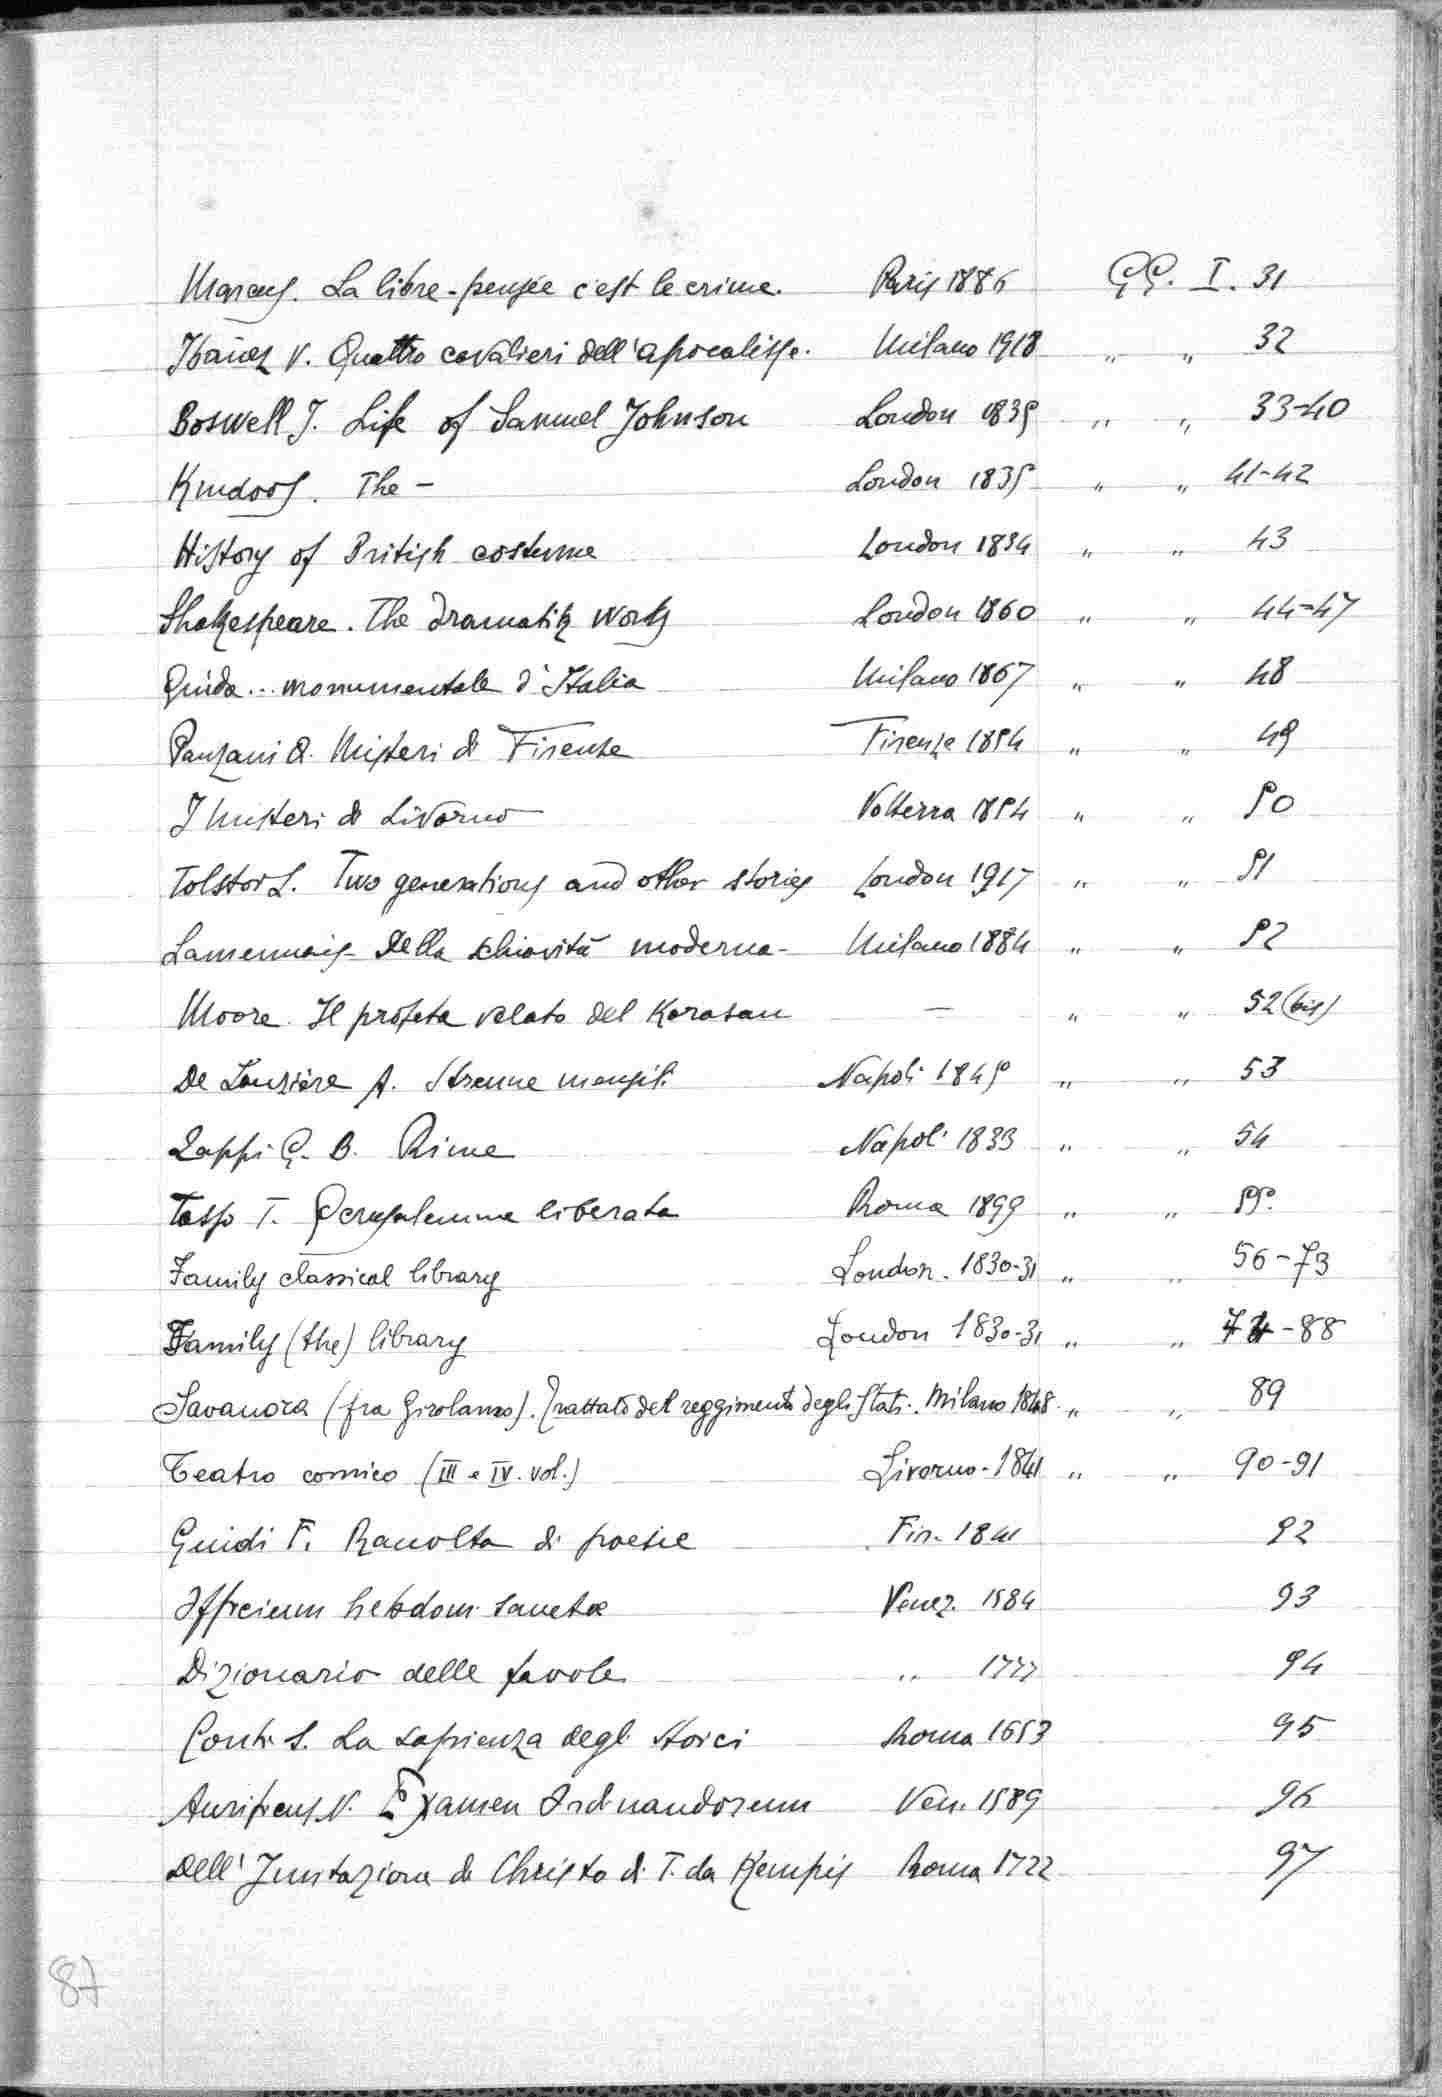 Marcus. La libre-pensée c'est le crime. Paris 1886 GG. I. 31
Ibañez V. Quattro cavalieri dell'apocalisse. Milano 1918 " " 32
Boswell J. Life of Samuel Johnson London 1835 " " 33-40
The - London 1835 " " 41-42
History of British costume London 1834 " " 43
Shakespeare. The dramatik works London 1860 " " 44-47
Guida... monumentale d'Italia Milano 1867 " " 48
Panzani Q. Misteri di Firenze Firenze 1854 " " 49
I misteri di Livorno Volterra 1854 " " 50
Tolstoi L. Two generations and other stories London 1917 " " 51
Lamennais - Della schiavitù moderna - Milano 1884 " " 52
Moore. Il profeta velato del Korasan - " " 52 (bis)
De Lauzière A. Strenne mensili Napoli 1845 " " 53
Zappi G. B. Rime Napoli 1833 " " 54
Tasso T. Gerusalemme liberata Roma 1899 " " 55.
Family classical library London. 1830-31 " " 56-73
Family (the) library London 1830-31 " " 74-88
Savanora (fra Girolamo). Trattato del reggimento degli Stati. Milano 1848 " " 89
Teatro comico (III e IV. vol.) Livorno - 1841 " " 90-91
Guidi F. Raccolta di poesie Fir. 1841 92
Officium hebdom. sanctae Venez. 1584 93
Dizionario delle favole " 1777 94
Conti S. La sapienza degli stoici Roma 1653 95
Aurificus N. Examen Ordinandorum Ven. 1589 96
Dell'Imitazione di Christo di T. da Kempis Roma 1722 97
87